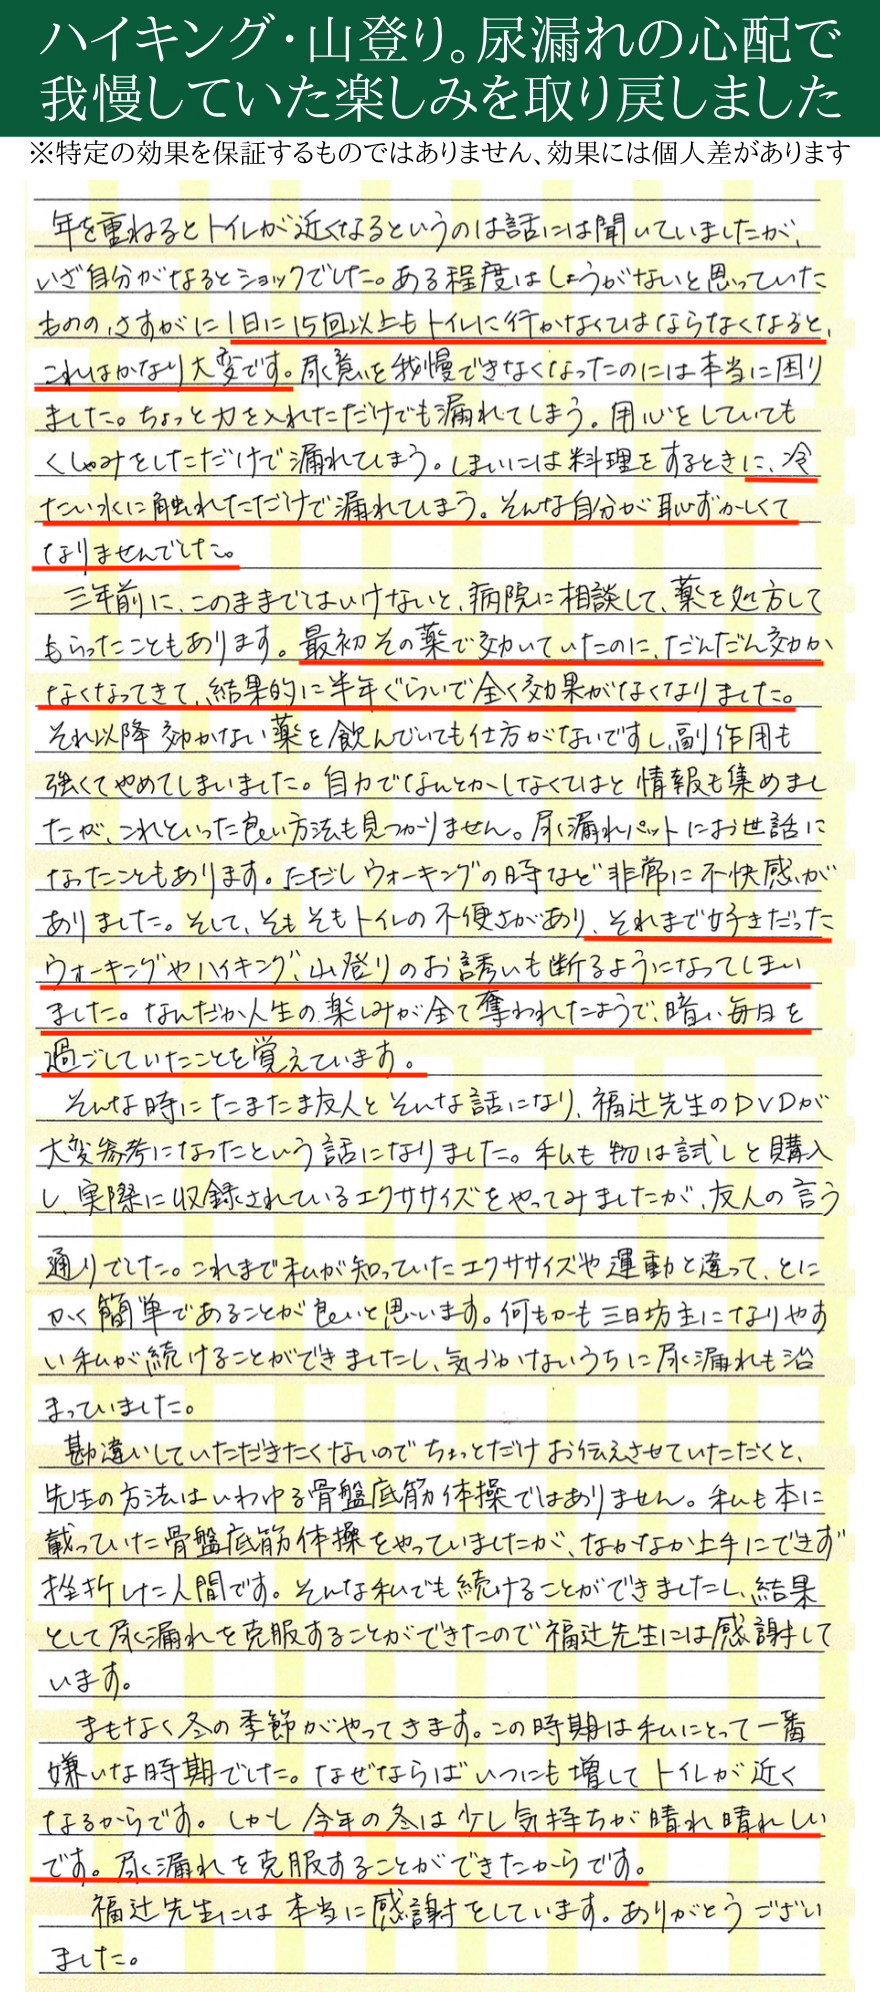 ハイキング・山登り。尿漏れの心配で
我慢していた楽しみを取り戻しました
※特定の効果を保証するものではありません、効果には個人差があります
年を重ねるとトイレが近くなるというのは話には聞いていましたが、
いざ自分がなるとショックでした。ある程度はしょうがないと思っていた
ものの、さすがに1日に15回以上もトイレに行かなくてはならなくなると、
これはかなり大変です。尿意を我慢できなくなったのには本当に困り
ました。ちょっと力を入れただけでも漏れてしまう。用心をしていても
くしゃみをしただけで漏れてしまう。しまいには料理をするときに、冷
たい水に触れただけで漏れてしまう。そんな自分が恥ずかしくて
なりませんでした。
三年前に、このままではいけないと、病院に相談して、薬を処方して
もらったこともあります。最初その薬で効いていたのに、だんだん効か
なくなってきて、結果的に半年ぐらいで全く効果がなくなりました。
それ以降効かない薬を飲んでいても仕方がないですし、副作用も
強くてやめてしまいました。自力でなんとかしなくてはと情報も集めまし
たが、これといった良い方法も見つかりません。尿漏れパットにお世話に
なったこともあります。ただしウォーキングの時など非常に不快感が
ありました。そして、そもそもトイレの不便さがあり、それまで好きだった
ウォーキングやハイキング、山登りのお誘いも断るようになってしまい
ました。なんだか人生の楽しみが全て奪われたようで、暗い毎日を
過ごしていたことを覚えています。
そんな時にたまたま友人とそんな話になり、福辻先生のDVDが
大変参考になったという話になりました。私も物は試しと購入
し、実際に収録されているエクササイズをやってみましたが、友人の言う
通りでした。これまで私が知っていたエクササイズや運動と違って、とに
かく簡単であることが良いと思います。何もかも三日坊主になりやす
い私が続けることができましたし、気づかないうちに尿漏れも治
まっていました。
勘違いしていただきたくないのでちょっとだけお伝えさせていただくと、
先生の方法はいわゆる骨盤底筋体操ではありません。私も本に
載っていた骨盤底筋体操をやっていましたが、なかなか上手にできず
挫折した人間です。そんな私でも続けることができましたし、結果
として尿漏れを克服することができたので福辻先生には感謝して
います。
まもなく冬の季節がやってきます。この時期は私にとって一番
嫌いな時期でした。なぜならばいつにも増してトイレが近く
なるからです。しかし今年の冬は少し気持ちが晴れ晴れしい
です。尿漏れを克服することができたからです。
福辻先生には本当に感謝をしています。ありがとうござい
ました。